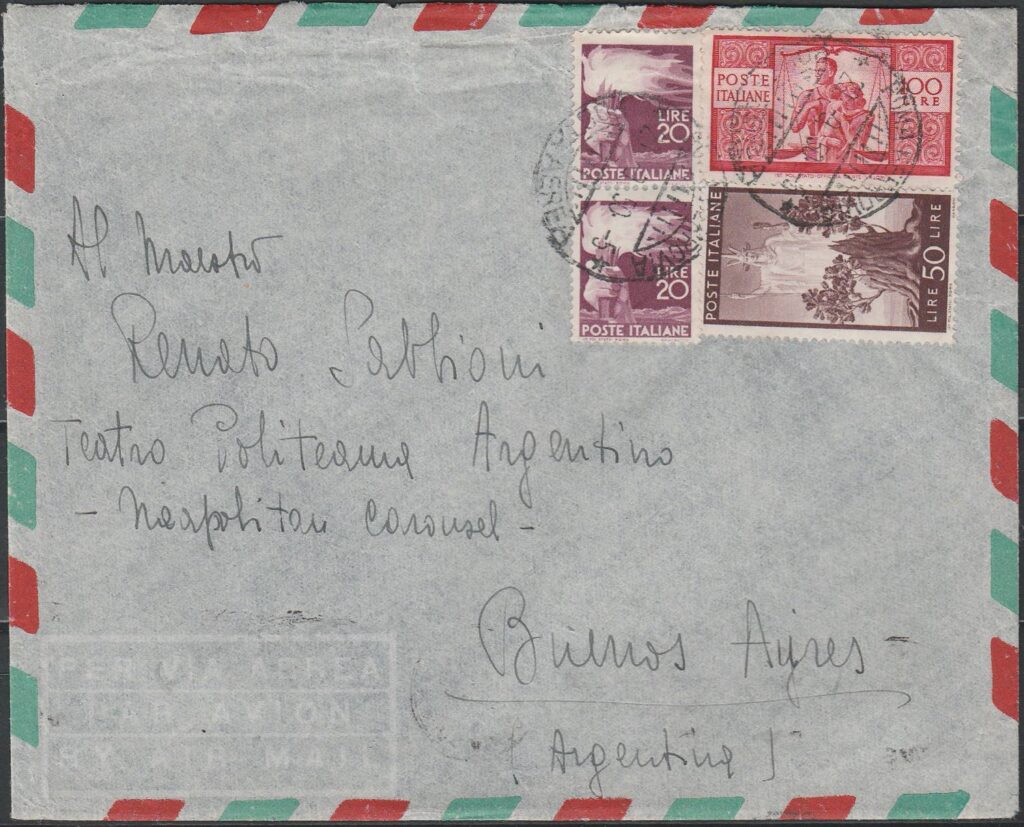 LIRE
20
POSTE ITALIANE
POSTE
ITALIANE
100
LIRE
LIRE
20
POSTE ITALIANE
POSTE ITALIANE
LIRE 50
Al Maestro
Renato Sabbioni
Teatro Politeama Argentino
- Neapolitan Carousel -
Buenos Ayres -
(Argentina)
PER VIA AEREA
PAR AVION
BY AIR MAIL